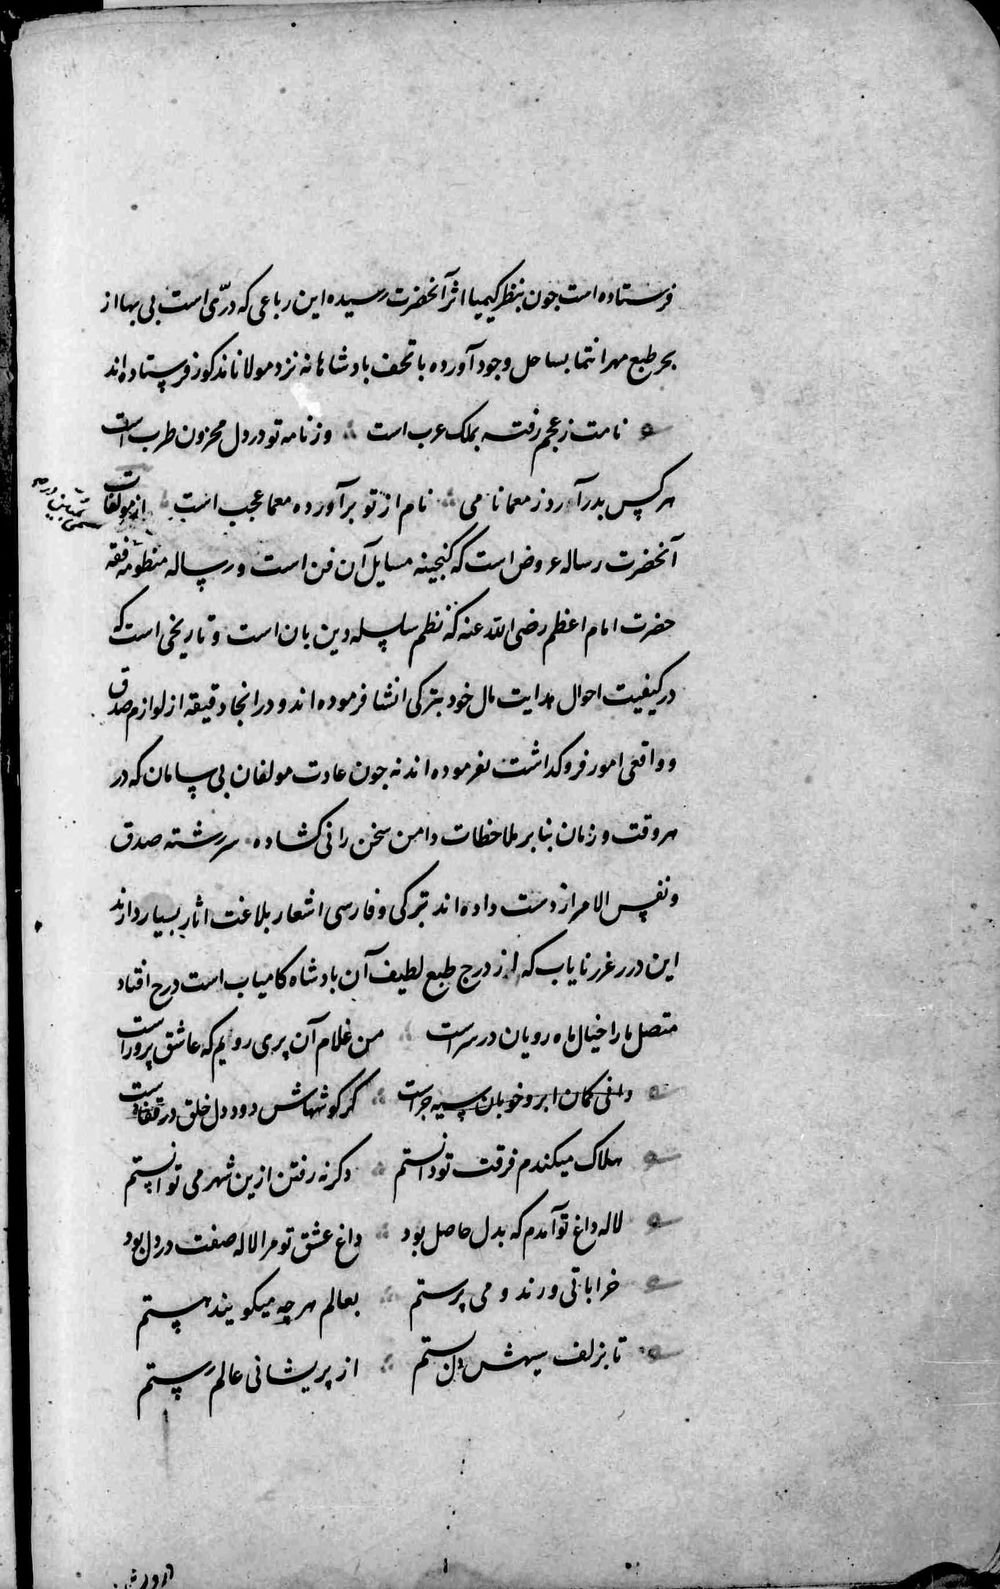 فرستاده است جون بنظر کیمیا اثر آنحضرت رسیده این رباعی که درّی است بی بها از
بحر طبع مهر انتما بساحل وجود آورده با تحف بادشاهانه نزد مولانا مذکور فرستاده اند
نامت ز عجم رفته بملک عرب است وز نامه تو در دل محزون طرب است
هر کس بدر آورد ز معما نامی نام از تو بر آورده معما عجب است از مولفات
آنحضرت رساله عروض است که کنجینه مسایل آن فن است و رساله منظومه فقه
حضرت امام اعظم رضی الله عنه که نظم سلسله دین بان است و تاریخی است که
در کیفیت احوال هدایت مال خود بترکی انشا فرموده اند و در انجا دقیقه از لوازم صدق
و واقعی امور فروکذاشت نفرموده اند نه جون عادت مولفان بی سامان که در
هر وقت و زمان بنا بر ملاحظات دامن سخن رانی کشاده سر رشته صدق
و نفس الامر از دست داده اند بترکی و فارسی اشعار بلاغت اثار بسیار دارند
این درر غرر نایاب که از درج طبع لطیف آن بادشاه کامیاب است درج افتاد
متصل ما را خیال ماه رویان در سر است من غلام آن پری رویم که عاشق پرور است
دانی کمان ابرو خوبان سیه جراست کز کوشهاش دود دل خلق در قفاست
هلاک میکندم فرقت تو دانستم وکرنه رفتن ازین شهر می توانستم
لاله داغ تو آمدم که بدل حاصل بود داغ عشق تو مرا لاله صفت در دل بود
خراباتی و رند و می پرستم بعالم هر چه میکویند هستم
تا بزلف سیهش دل بستم از پریشانی عالم رستم